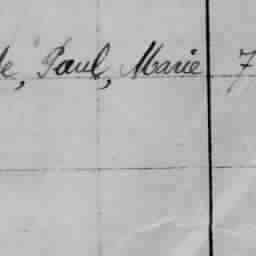 le, Paul, Marie 7